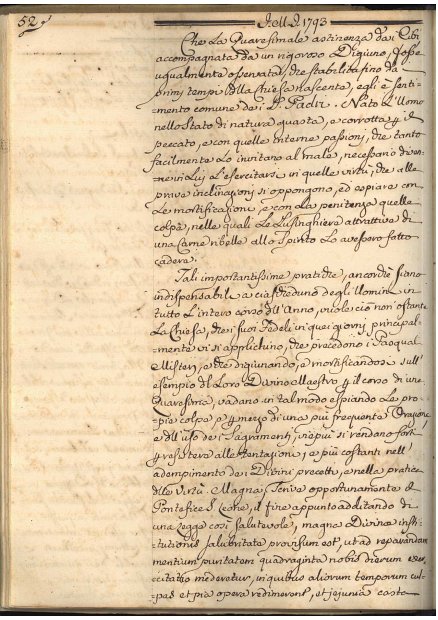 52
Nell' A. 1793
Che La Quaresimale astinenza da i Cibi
accompagnata da un rigoroso Digiuno, fosse
ugualmente osservata, che stabilita fino da
primi tempi della Chiesa nascente, egli è senti-
mento comune de i S. Padri. Nato L'Uomo
nello Stato di natura guasta, e corrotta p il
peccato, e con quelle interne passioni, che tanto
facilmente Lo invitano al male, necessario diven-
ne in Lui L'esercitarsi in quelle virtù, che alle
prave inclinazioni si oppongono, ed espiare con
Le mortificazioni, e con La penitenza quelle
colpe, nelle quali Le Lusinghiere attrattive di
una Carne ribelle allo Spirito Lo avessero fatto
cadere.
Tali importantissime pratiche, ancorchè siano
indispensabili a ciascheduno degli Uomini in
tutto L'intero corso dell'Anno, vuole ciò non ostante
La Chiesa, che i suoi Fedeli in quei giorni principal-
mente vi si applichino, che precedono i Pasquali
Misteri, e che digiunando, e mortificandosi sull'
esempio del Loro Divino Maestro p il corso di una
Quaresima, vadano in tal modo espiando Le pro-
prie colpe, e p mezzo di una più frequente Orazione,
e dell'uso de i Sagramenti, viepiù si rendano forti
p resistere alle tentazioni, e più costanti nell'
adempimento de i Divini precetti, e nella pratica
delle Virtù. Magno Teneva opportunamente il
Pontefice S. Leone, il fine appunto additando di
una Legge così salutevole, magna Divinæ insti-
tutionis salubritate provisum est, ut ad reparandam
mentium puritatem quadraginta nobis dierum exer-
citatio mederetur, in quibus aliorum temporum cul-
pas et pia opera redimerent, et jejunia casta